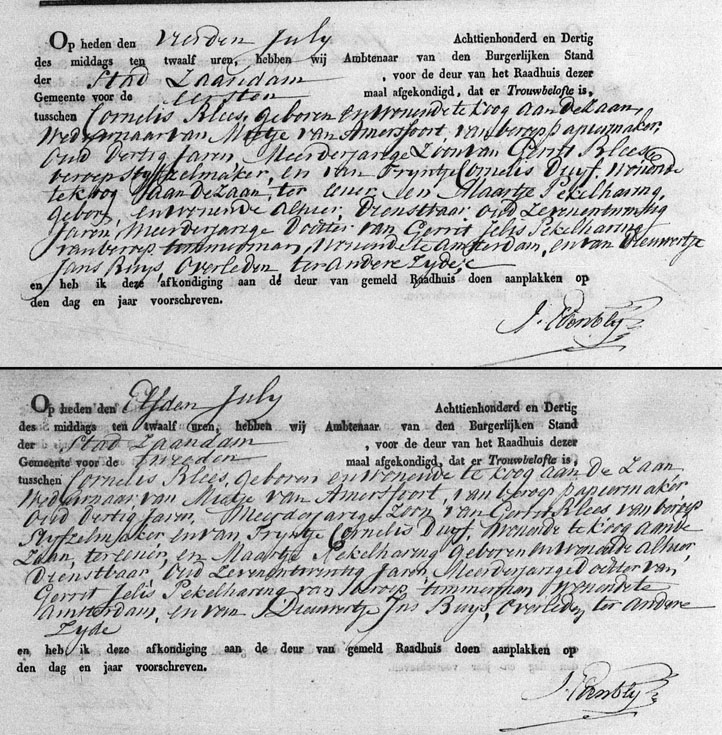 Op heden den Vierden July Achttienhonderd en Dertig
des middags ten twaalf uren, hebben wij Ambtenaar van den Burgerlijken Stand
der Stad Zaandam , voor de deur van het Raadhuis dezer
Gemeente voor de eersten maal afgekondigd, dat er Trouwbelofte is,
tusschen Cornelis Klees, geboren en wonende te koog aan de Zaan,
Weduwnaar van Mietje van Amersfoort, van beroep papiermaker,
Oud dertig Jaren, Meerderjarige Zoon van Gerrit Klees
beroep Styfzelmaker, en van Tryntje Cornelis Duyf, Wonende
te koog aan de Zaan, ter eener, en Maartje Pekelharing,
geboren, en wonende alhier, Dienstbaar, Oud Zevenentwintig
Jaren Meerderjarige Dochter van Gerrit Jelis Pekelharing
van beroep timmerman, wonende te Amsterdam, en van Dieuwertje
Jans Kuys, Overleden ter andere Zyde,
en heb ik deze afkondiging aan de deur van gemeld Raadhuis doen aanplakken op
den dag en jaar voorschreven.
Op heden den Elfden July Achttienhonderd en Dertig
des middags ten twaalf uren, hebben wij Ambtenaar van den Burgerlijken Stand
der Stad Zaandam , voor de deur van het Raadhuis dezer
Gemeente voor de tweeden maal afgekondigd, dat er Trouwbelofte is,
tusschen Cornelis Klees, geboren en wonende te koog aan de Zaan,
Weduwnaar van Mietje van Amersfoort, van beroep papiermaker,
Oud dertig Jaren, Meerderjarige Zoon van Gerrit Klees van beroep
Styfzelmaker, en van Tryntje Cornelis Duyf, Wonende te koog aan de
Zaan, ter eener, en Maartje Pekelharing geboren en wonende alhier,
Dienstbaar Oud Zevenentwintig Jaren Meerderjarige Dochter van
Gerrit Jelis Pekelharing van beroep, timmerman wonende te
Amsterdam, en van Dieuwertje Jns Kuys, Overleden, ter andere
Zyde
en heb ik deze afkondiging aan de deur van gemeld Raadhuis doen aanplakken op
den dag en jaar voorschreven.